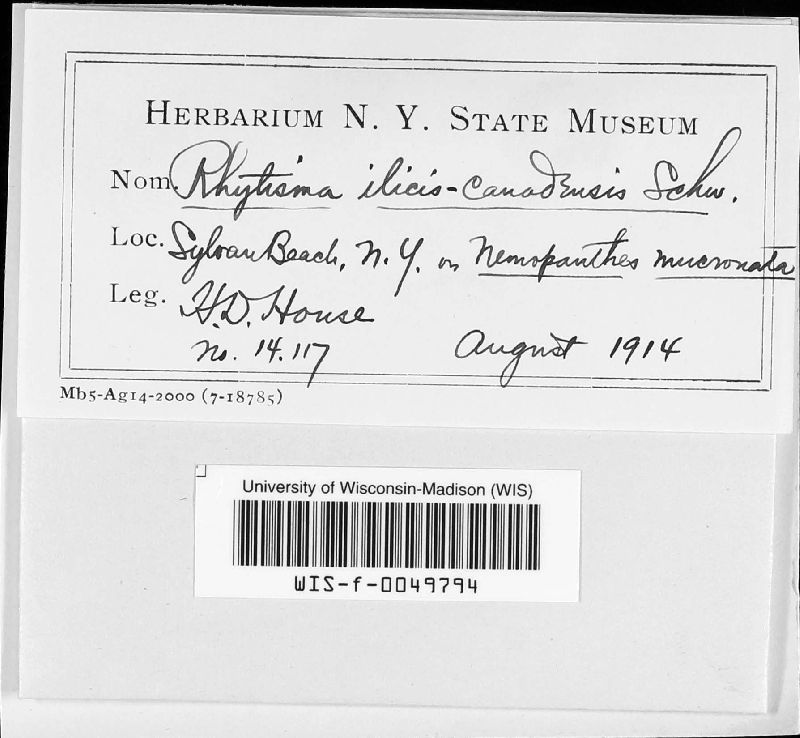 HERBARIUM N. Y. STATE MUSEUM
Nom. Rhytisma ilicis-canadensis Schw.
Loc. Sylvan Beach, N. Y. on Nemopanthes mucronata
Leg. H. D. House
No. 14.117 August 1914
Mb5-Ag14-2000 (7-18785)
University of Wisconsin-Madison (WIS)
WIS-f-0049794